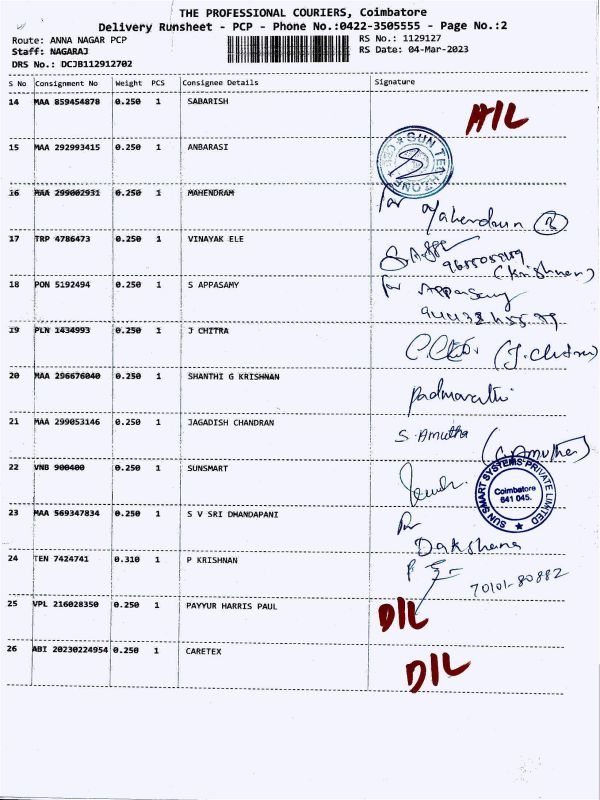 THE PROFESSIONAL COURIERS, Coimbatore
Delivery Runsheet - PCP - Phone No.:0422-3505555 - Page No.:2
Route: ANNA NAGAR PCP RS No.: 1129127
Staff: NAGARAJ RS Date: 04-Mar-2023
DRS No.: DCJB112912702
S No Consignment No Weight PCS Consignee Details Signature
14 MAA 859454878 0.250 1 SABARISH
15 MAA 292993415 0.250 1 ANBARASI
SUN TEN
16 MAA 299002931 0.250 1 MAHENDRAM
for Mahendran
17 TRP 4786473 0.250 1 VINAYAK ELE
(Krishnan)
18 PON 5192494 0.250 1 S APPASAMY
for Appasamy
19 PLN 1434993 0.250 1 J CHITRA
(J. Chitra)
20 MAA 296676040 0.250 1 SHANTHI G KRISHNAN
Padmavathi
21 MAA 299053146 0.250 1 JAGADISH CHANDRAN
S. Amutha (S. Amutha)
22 VNB 900400 0.250 1 SUNSMART
SUN SMART SYSTEMS PRIVATE LIMITED
Coimbatore
641 045.
23 MAA 569347834 0.250 1 S V SRI DHANDAPANI
for
Dakshana
24 TEN 7424741 0.310 1 P KRISHNAN
70101-80882
25 VPL 216028350 0.250 1 PAYYUR HARRIS PAUL
D/L
26 ABI 20230224954 0.250 1 CARETEX
D/L